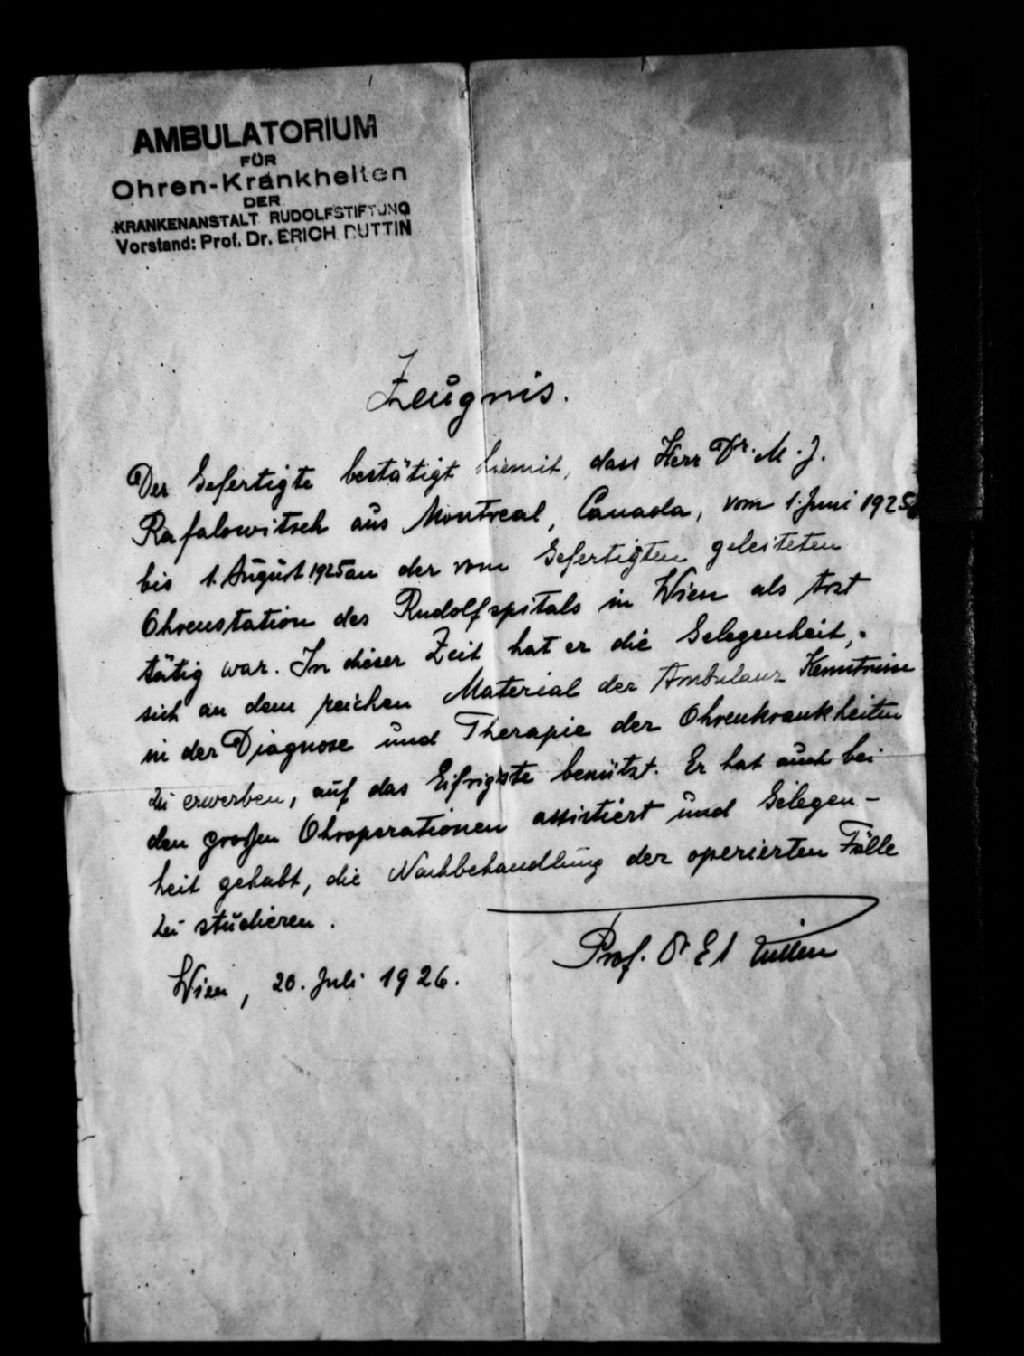 AMBULATORIUM
FÜR
Ohren-Krankheiten
DER
KRANKENANSTALT RUDOLFSTIFTUNG
Vorstand: Prof. Dr. ERICH RUTTIN
Zeugnis.
Der Gefertigte bestätigt hiemit, dass Herr Dr. M. J.
Rafalowitsch aus Montreal, Canada, vom 1. Juni 1925
bis 1. August 1925 an der vom Gefertigten geleiteten
Ohrenstation des Rudolfspitals in Wien als Arzt
tätig war. In dieser Zeit hat er die Gelegenheit,
sich an dem reichen Material der Ambulanz Kenntnisse
in der Diagnose und Therapie der Ohrenkrankheiten
zu erwerben, auf das Eifrigste benützt. Er hat auch bei
den großen Ohroperationen assistiert und Gelegen-
heit gehabt, die Nachbehandlung der operierten Fälle
zu studieren.
Prof. Dr E Ruttin
Wien, 20. Juli 1926.